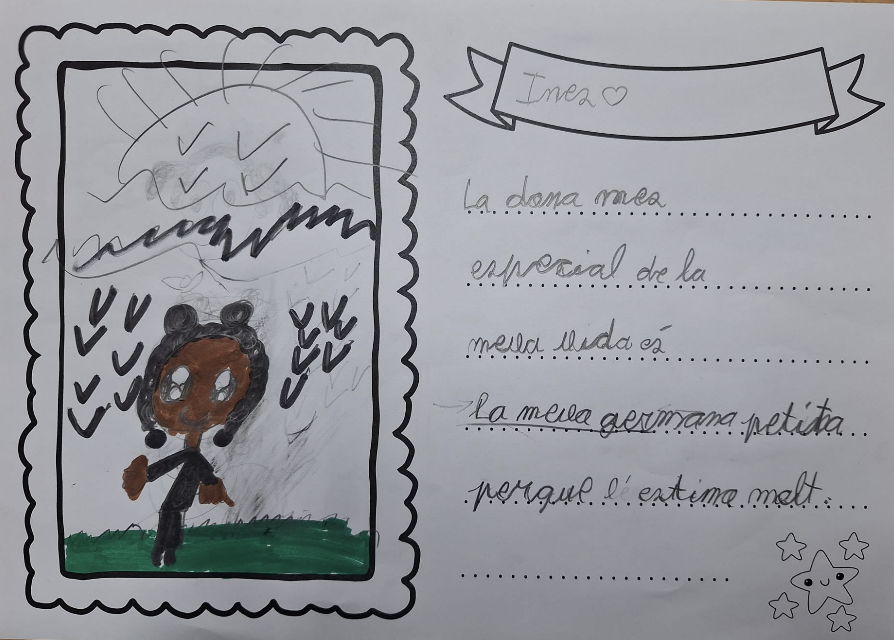 Inez♡
La dona mes
especial de la
meva vida és
la meva germana petita
perque l'estima molt.